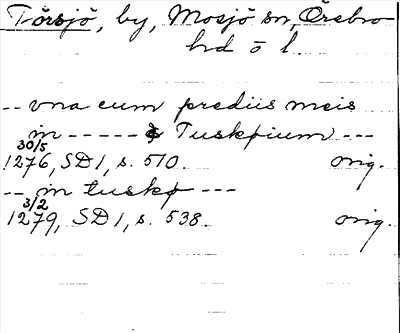 Törsjö, by, Mosjö sn, Örebro
hd ö l.
-- vna cum prediis meis
in ----- & Tuskpium ---
30/5
1276, SD1, s. 510. orig.
-- in tuskp ---
3/2
1279, SD1, s. 538. orig.